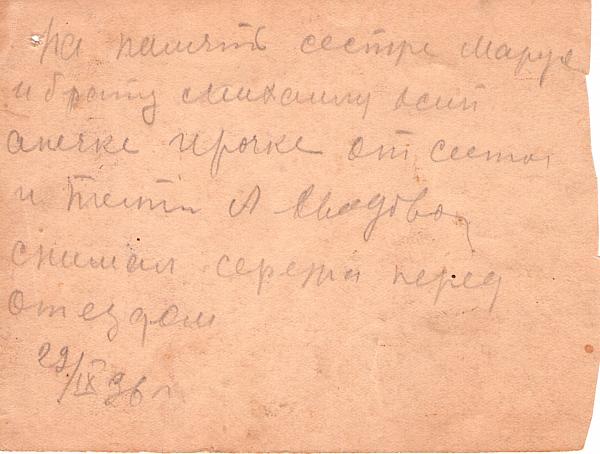 На память сестре Марусе
и брату Михаилу Осип
анечке ирочке от сестры
и тети А
снимал сережа перед
отездом
29/IX 36 г